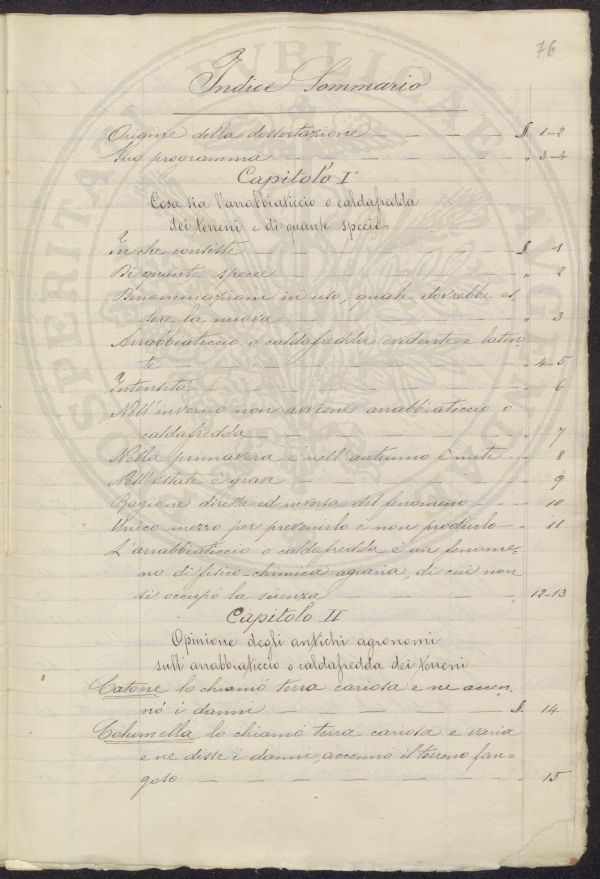 76
Indice Sommario
Origine della dissertazione — — — — §. 1-2
Suo programma — — — — — " 3-4
Capitolo Iº
Cosa sia l'arrabbiaticcio o caldafredda
dei terreni e di quante specie
In che consiste — — — — — §. 1
Di quante specie — — — — — " 2
Denominazioni in uso, quale dovrebbe es-
sere la nuova — — — — — " 3
Arrabbiaticcio o caldafredda evidente e laten-
te — — — — — " 4-5
Intensità — — — — — " 6
Nell'inverno non avviene arrabbiaticcio o
caldafredda — — — — — " 7
Nella primavera e nell'autunno è mite — " 8
Nell'estate è grave — — — — " 9
Ragione diretta ed inversa del fenomeno — " 10
Unico mezzo per prevenirlo e non produrlo — " 11
L'arrabbiaticcio o caldafredda è un fenome-
no di fisico-chimica agraria, di cui non
si occupò la scienza — — — — " 12-13
Capitolo II
Opinione degli antichi agronomi
sull'arrabbiaticcio o caldafredda dei terreni.
Catone lo chiamò terra cariosa e ne accen-
nò i danni — — — — §. 14
Columella lo chiamò terra cariosa e varia
e ne disse i danni, accennò il terreno fan-
goso — — — — — 15
PROSPERITATI PVBLICAE AVGENDAE